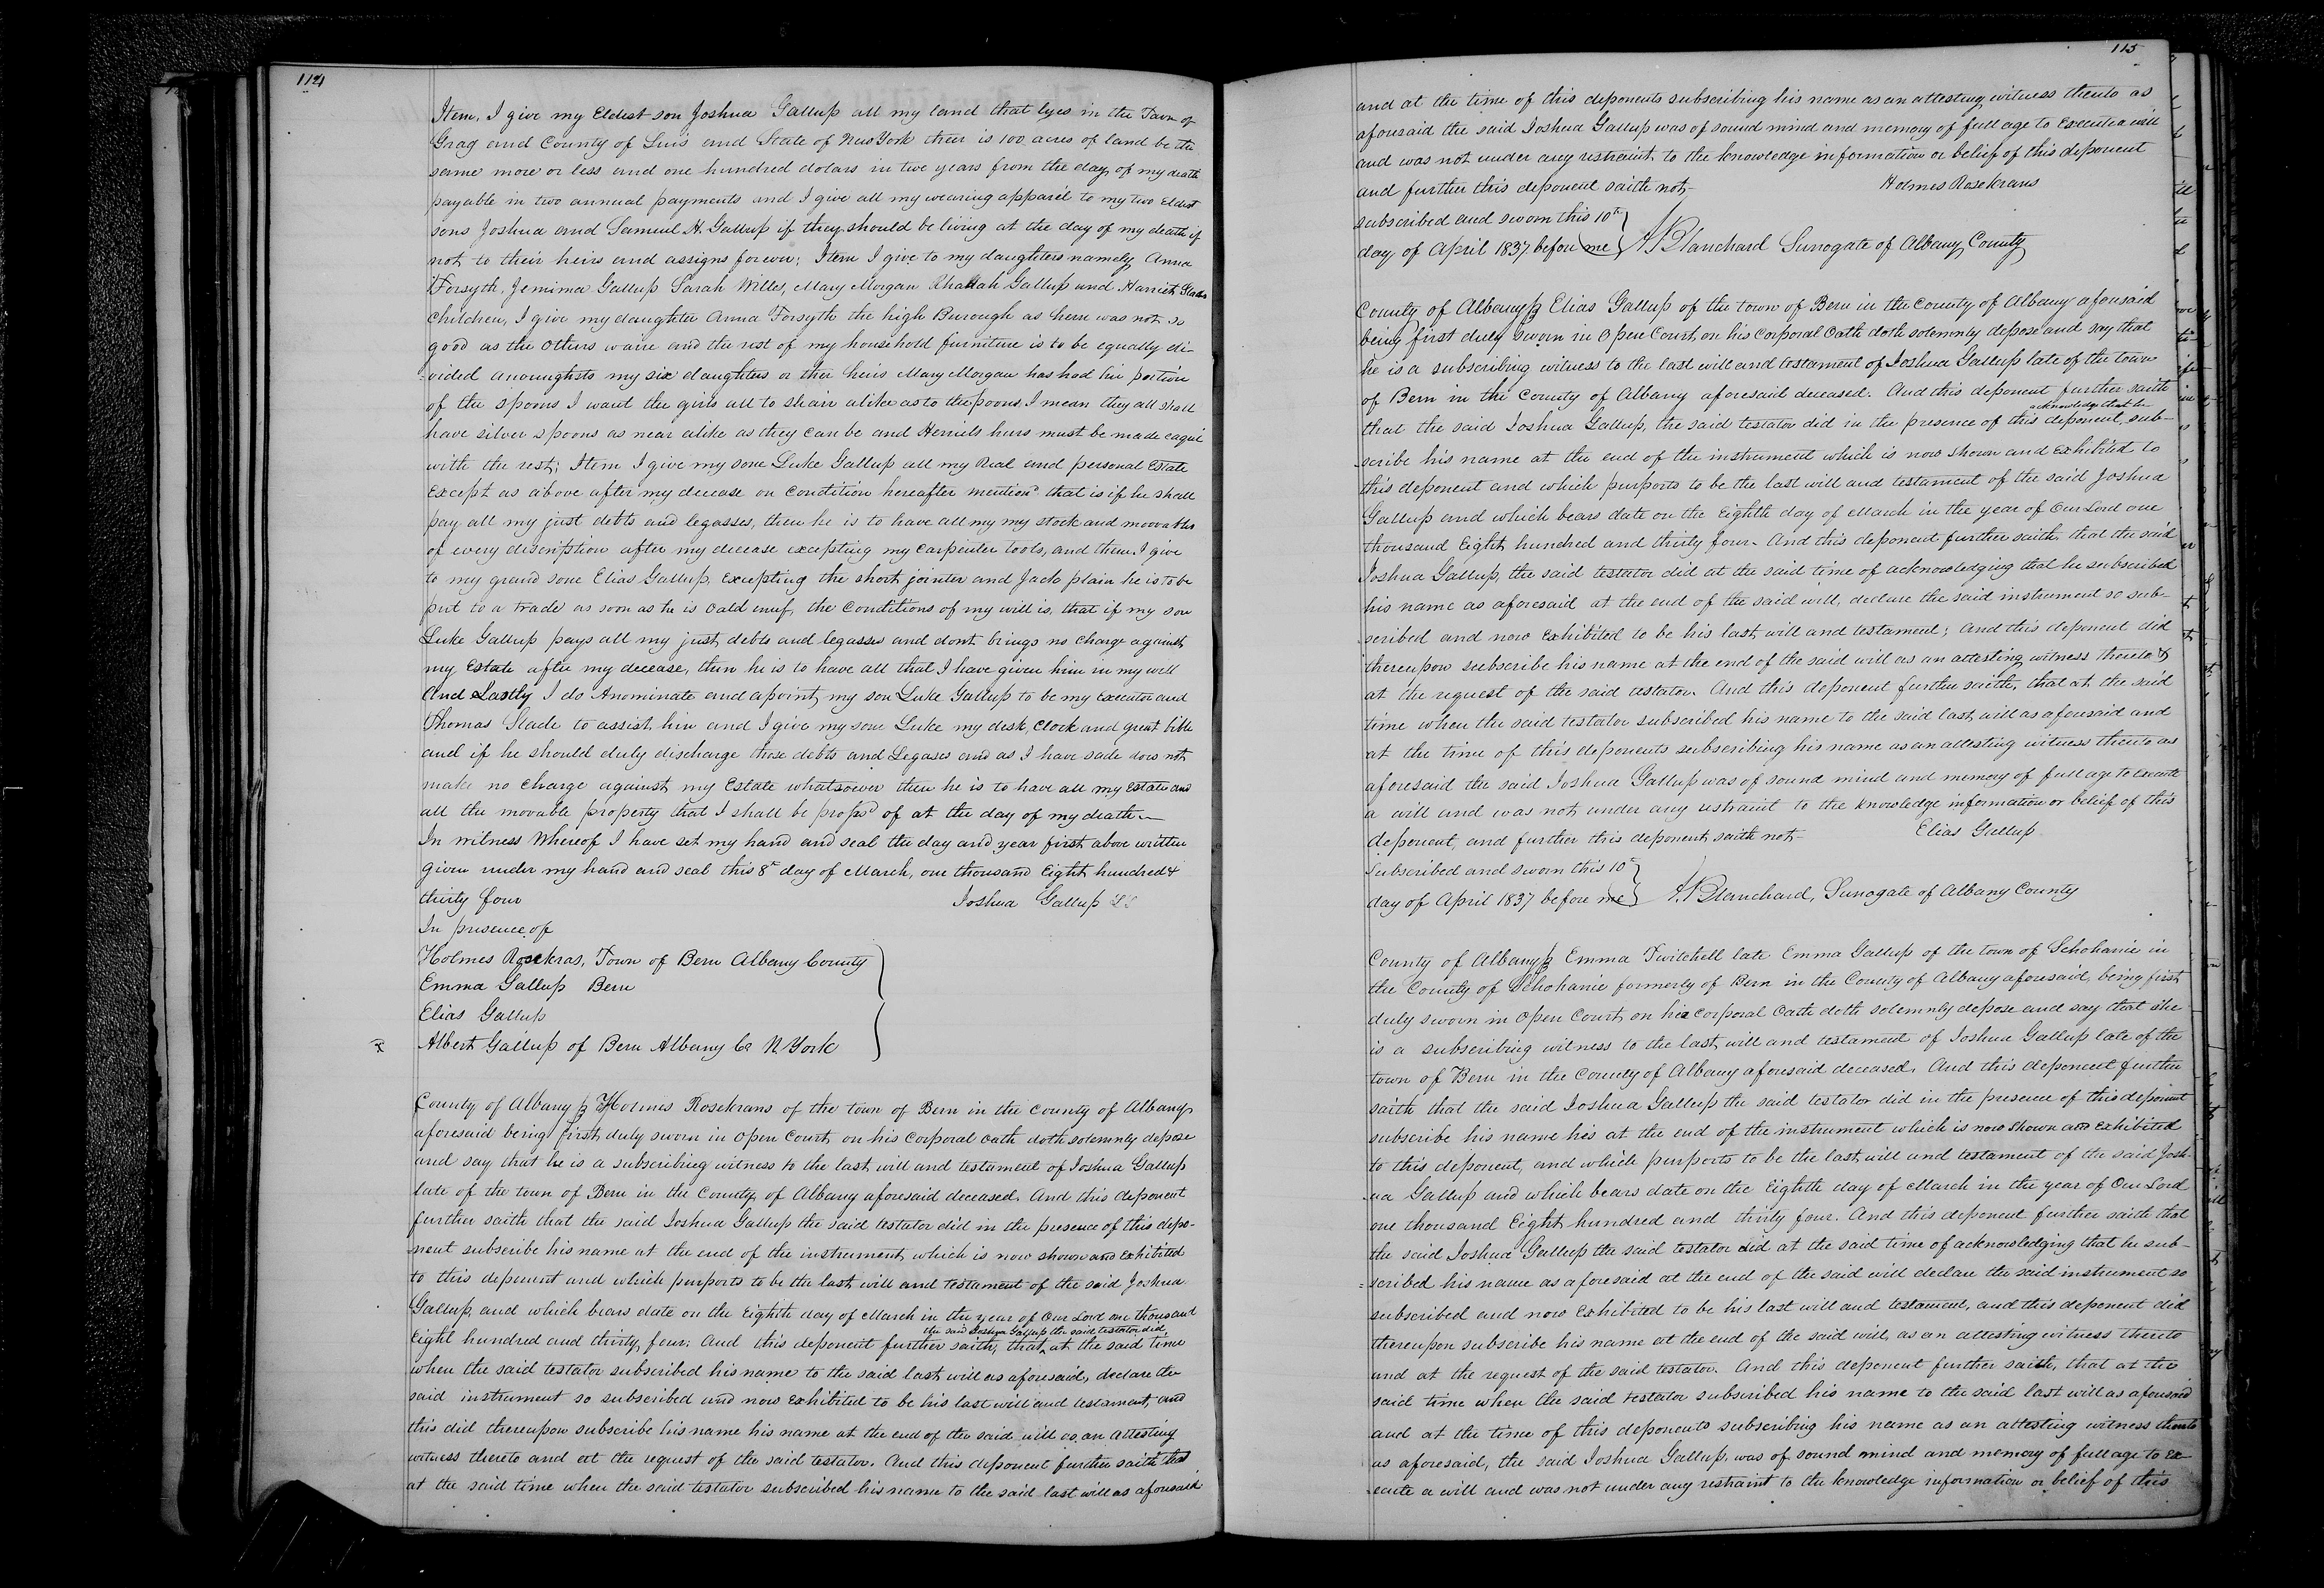 114
Item, I give my Eldest son Joshua Gallup all my land that lyes in the Town of
Grag and County of Luis and State of New York their is 100 acres of land be the
same more or less and one hundred dolars in two years from the day of my death
payable in two annual payments and I give all my wearing apparel to my two Eldest
sons Joshua and Samuel H. Gallup if they should be living at the day of my death if
not to their heirs and assigns forever; Item I give to my daughters namely Anna
Forsyth, Jemima Gallup Sarah Willes, Mary Morgan Gallup and Harriet Slades
children, I give my daughter Anna Forsyth the high Burough as hern was not so
good as the Others warre and the rest of my household furniture is to be equally di-
-vided amounghsts my six daughters or ther heirs Mary Morgan has had hir portion
of the spoons I want the girls all to shair alike as to the spoons I mean they all shall
have silver spoons as near alike as they can be and Herriets hers must be made eaquil
with the rest; Item I give my sone Luke Gallup all my Real and personal Estate
Except as above after my decease on condition hereafter mention'd that is if he shall
pay all my just debts and legasses, then he is to have all my my stock and moovables
of every discription after my decease excepting my carpenter tools, and them I give
to my grand sone Elias Gallup, Excepting the short jointer and Jack plain he is to be
put to a trade as soon as he is oald enuf, the conditions of my will is, that if my son
Luke Gallup pays all my just debts and legasses and dont brings no charge against
my Estate after my decease, then he is to have all that I have given him in my will
And Lastly I do Anominate and apoint my son Luke Gallup to be my Executor and
Thomas Slade to assist him and I give my sone Luke my desk, clock and great bible
and if he should duly discharge these debts and Legases and as I have sade does not
make no charge against my Estate whatsoever then he is to have all my Estate and
all the movable property that I shall be props'd of at the day of my death—
In witness Whereof I have set my hand and seal the day and year first above written
given under my hand and seal this 8th day of March, one thousand Eight hundred &
thirty four Joshua Gallup LS
In presence of
Holmes Rosekras, Town of Bern Albany County
Emma Gallup Bern
Elias Gallup
Albert Gallup of Bern Albany Co N. York
County of Albany ss Holmes Rosekrans of the town of Bern in the county of Albany
aforesaid being first duly sworn in open Court on his corporal oath doth solemnly depose
and say that he is a subscribing witness to the last will and testament of Joshua Gallup
late of the town of Bern in the County of Albany aforesaid deceased. And this deponent
further saith that the said Joshua Gallup the said testator did in the presence of this depo-
-nent subscribe his name at the end of the instrument which is now shown and Exhibited
to this deponent and which purports to be the last will and testament of the said Joshua
Gallup, and which bears date on the Eighth day of March in the year of Our Lord one thousand
the said Joshua Gallup the said testator did
Eight hundred and thirty four. And this deponent further saith, that ^ at the said time
when the said testator subscribed his name to the said last will as aforesaid, declare the
said instrument so subscribed and now Exhibited to be his last will and testament, and
this did thereupon subscribe his name his name at the end of the said will as an attesting
witness thereto and at the request of the said testator. And this deponent further saith that
at the said time when the said testator subscribed his name to the said last will as aforesaid
115
and at the time of this deponents subscribing his name as an attesting witness thereto as
aforesaid the said Joshua Gallup was of sound mind and memory of full age to Execute a will
and was not under any restraint to the knowledge information or belief of this deponent
and further this deponent saith not- Holmes Rosekrans
subscribed and sworn this 10th
day of April 1837 before me A. Blanchard Surrogate of Albany County
County of Albany ss Elias Gallup of the town of Bern in the County of Albany aforesaid
being first duly sworn in Open Court on his corporal Oath doth solemnly depose and say that
he is a subscribing witness to the last will and testament of Joshua Gallup late of the town
of Bern in the County of Albany aforesaid deceased. And this deponent further saith
acknowledge that he
that the said Joshua Gallup, the said testator did in the presence of this deponent, sub-
-scribe his name at the end of the instrument which is now shown and Exhibited to
this deponent and which purports to be the last will and testament of the said Joshua
Gallup and which bears date on the Eighth day of March in the year of Our Lord one
thousand Eight hundred and thirty four- And this deponent further saith that the said
Joshua Gallup, the said testator did at the said time of acknowledging that he subscribed
his name as aforesaid at the end of the said will, declare the said instrument so sub-
-scribed and now Exhibited to be his last will and testament; And this deponent did
thereupon subscribe his name at the end of the said will as an attesting witness thereto &
at the request of the said testator. And this deponent further saith, that at the said
time when the said testator subscribed his name to the said last will as aforesaid and
at the time of this deponents subscribing his name as an attesting witness thereto as
aforesaid the said Joshua Gallup was of sound mind and memory of full age to Execute
a will and was not under any restraint to the knowledge information or belief of this
deponent, and further this deponent saith not- Elias Gallup
Subscribed and sworn this 10th
day of April 1837 before me A. Blanchard, Surrogate of Albany County
County of Albany ss Emma Twitchell late Emma Gallup of the town of Schoharie in
the County of Schoharie formerly of Bern in the County of Albany aforesaid, being first
duly sworn in Open Court on her corporal Oath doth solemnly depose and say that she
is a subscribing witness to the last will and testament of Joshua Gallup late of the
town of Bern in the County of Albany aforesaid deceased. And this deponent further
saith that the said Joshua Gallup the said testator did in the presence of this deponent
subscribe his name his at the end of the instrument which is now shown and Exhibited
to this deponent, and which purports to be the last will and testament of the said Josh-
-ua Gallup and which bears date on the Eighth day of March in the year of Our Lord
one thousand Eight hundred and thirty four. And this deponent further saith that
the said Joshua Gallup the said testator did at the said time of acknowledging that he sub-
-scribed his name as aforesaid at the end of the said will declare the said instrument so
subscribed and now Exhibited to be his last will and testament, and this deponent did
thereupon subscribe his name at the end of the said will, as an attesting witness thereto
and at the request of the said testator. And this deponent further saith, that at the
said time when the said testator subscribed his name to the said last will as aforesaid
and at the time of this deponents subscribing his name as an attesting witness thereto
as aforesaid, the said Joshua Gallup was of sound mind and memory of full age to Ex-
-ecute a will and was not under any restraint to the knowledge information or belief of this